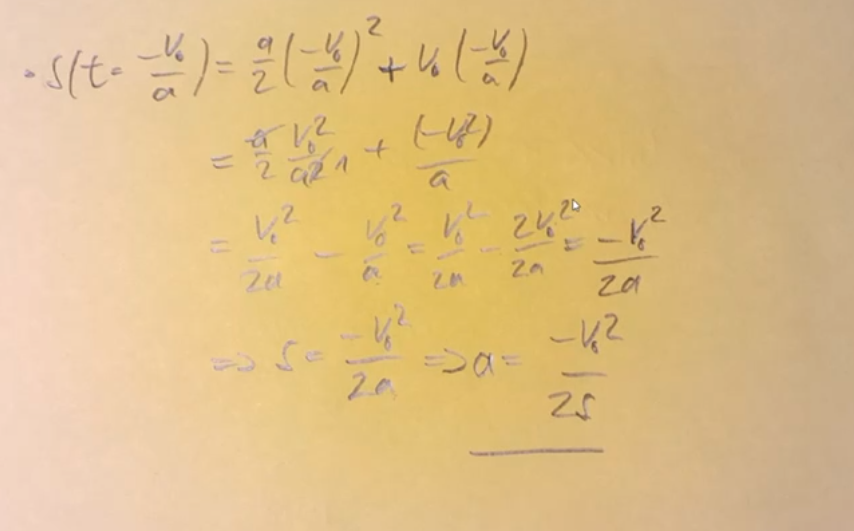 • S(t = -V₀/a) = a/2 (-V₀/a)² + V₀ (-V₀/a)
= a/2 V₀²/a² 1 + (-V₀²)/a
= V₀²/2a - V₀²/a = V₀²/2a - 2V₀²/2a = -V₀²/2a
=> S = -V₀²/2a => a = -V₀²/2S